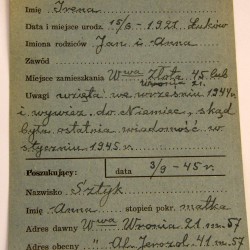 Imię Irena
Data i miejsce urodz. 15/6 - 1921. Łuków
Imiona rodziców Jan i Anna
Zawód
Miejsce zamieskania W-wa Złota 45
Wronia 21.
Uwagi wzięta we wrześniu 1944 r
i wywież. do Niamiec, skąd
była ostatnia wiadomość w
styczniu 1945 r.
Poszukujący: data 3/9 - 45 r
Nazwisko Sztyk
Imię Anna stopień pokr. matka
Adres dawny W-wa Wronia 21 m. 57
Adres obecny " Al. Jerozol. 41 m. 57